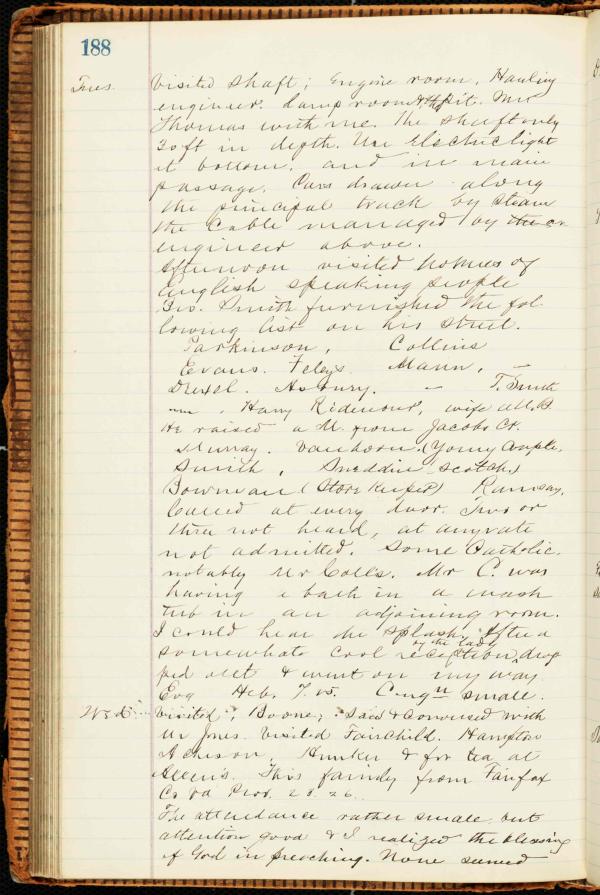 188
Tues. Visited shaft; Engine room. Hauling
engineer. Lamp room & pit. Mr
Thomas with me. The shaft only
30 ft in depth. Use Electric light
at bottom, and in main
passage. Cars drawn along
the principal track by steam
the Cable managed by the
engineer above.
Afternoon visited homes of
English speaking people
Smith furnished the fol-
lowing list on his street.
Parkinson, Collins
Evans. Mann,
Drexel. Asbury. T. Smith
Harry Ridenour, wife
He raised a M. from Jacobs Cr.
Murray. Vanhorn. (Young Couple,
Smith, Sneddin (Scotch.)
Bowman (Store Keeper) Ramsay.
Called at every door. Two or
three not heard, at any rate
not admitted. Some Catholic.
notably Mr Colls. Mr C. was
having a bath in a wash
tub in an adjoining room.
I could hear the splash. After a
somewhat cool reception by the lady, drop
ped out & went on my way.
Evg Heb. Congn small.
Wed. Visited; Boone; Saw & Conversed with
Mr Jones. Visited Fairchild. Hampton
Acheson, Hunker & for tea at
Allen's. This family from Fairfax
Co Va Prov. 28. 26.
The attendance rather small, but
attention good & I realized the blessing
of God in preaching. None seemed